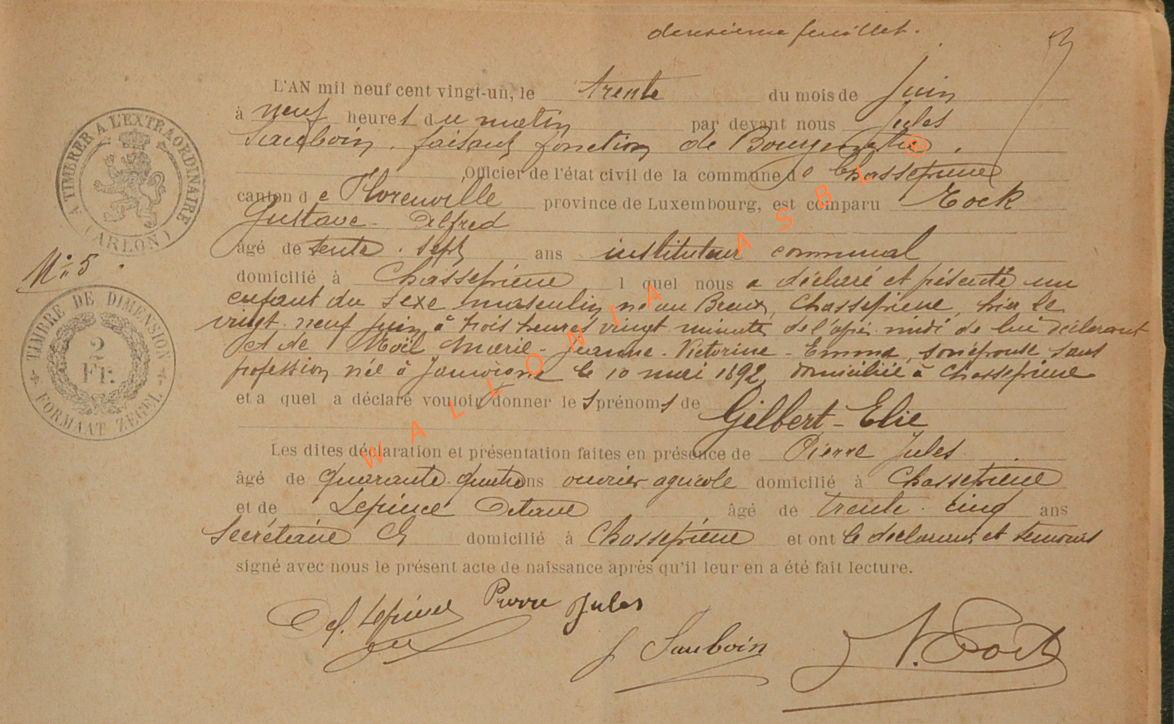 deuxième feuillet.
3
L'AN mil neuf cent vingt-un, le trente du mois de juin
à neuf heures du matin par devant nous Jules
Sauboin, faisant fonction de Bourgmestre,
Officier de l'état civil de la commune de Chassepierre
canton de Florenville province de Luxembourg, est comparu Cock
Gustave-Alfred
âgé de trente-sept ans instituteur communal
N° 5.
domicilié à Chassepierre lequel nous a déclaré et présenté un
enfant du sexe masculin né au Breux, Chassepierre, hier le
vingt-neuf juin, à trois heures vingt minutes de l'après midi de lui déclarant
et de Noël Marie-Jeanne-Victorine-Emma, son épouse sans
profession née à Jamoigne le 10 mai 1892, domiciliée à Chassepierre
et auquel a déclaré vouloir donner les prénoms de Gilbert-Elie
Les dites déclaration et présentation faites en présence de Pierre Jules
âgé de quarante-quatre ans ouvrier agricole domicilié à Chassepierre
et de Lepience Octave âgé de trente-cinq ans
Secrétaire Cl domicilié à Chassepierre et ont le déclarant et témoins
signé avec nous le présent acte de naissance après qu'il leur en a été fait lecture.
Pierre Jules
J Sauboin
A TIMBRER A L'EXTRAORDINAIRE
(ARLON)
TIMBRE DE DIMENSION
2
Fr.
FORMAAT ZEGEL
WALLONIA ASBL ©